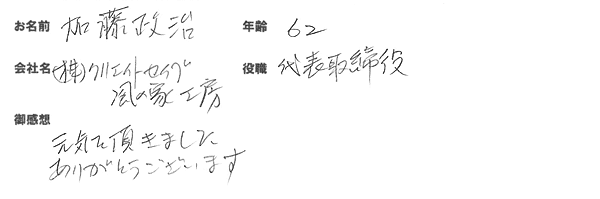 お名前 加藤政治 年齢 62
会社名 (株)クリエイトセイブ 役職 代表取締役
風の家工房
御感想
元気を頂きました
ありがとうございます